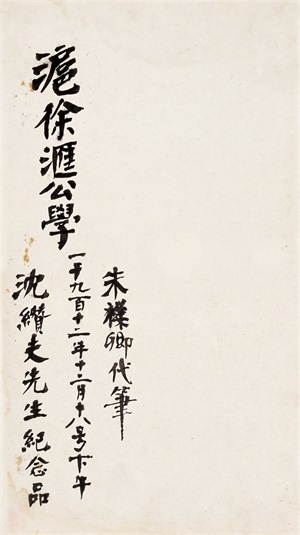 朱卿代筆
一千九百十二年十二月十八号下午
滬徐滙公學
沈纘夫先生紀念品